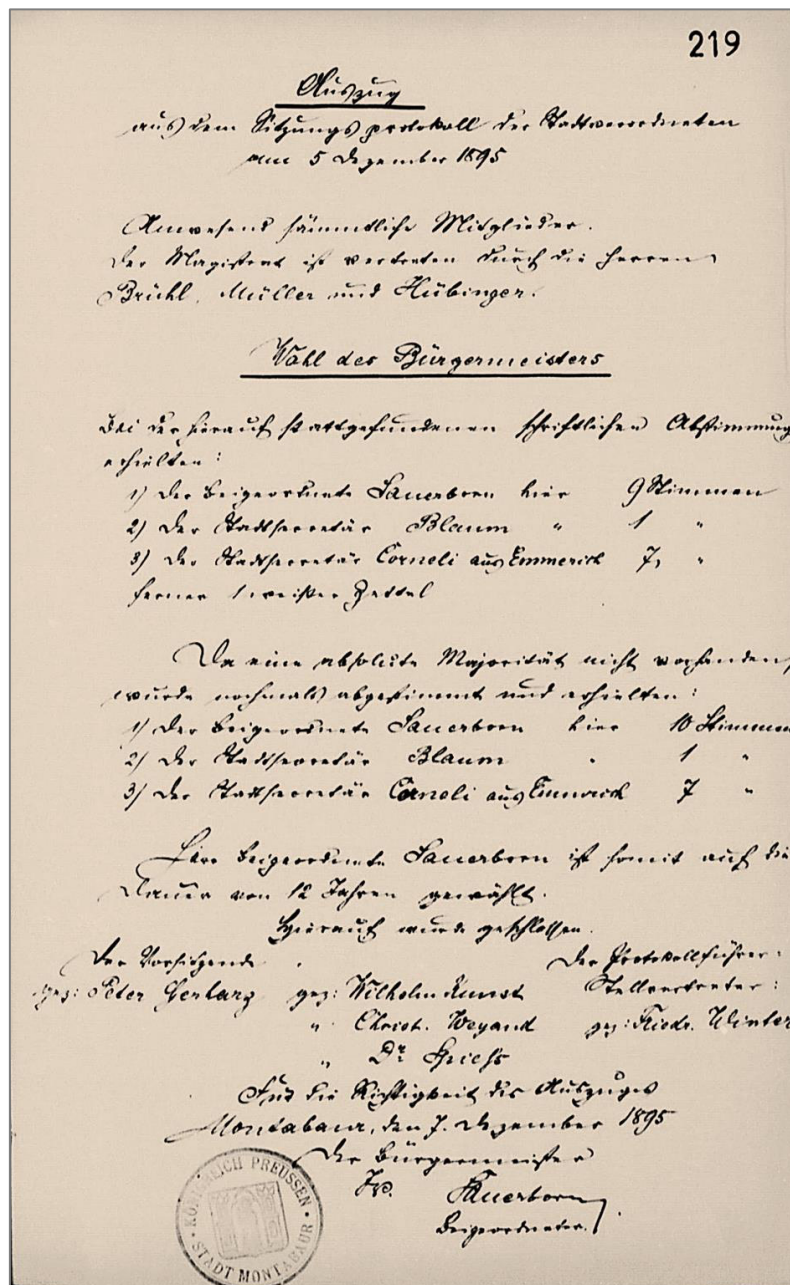 219
Auszug
aus dem Sitzungsprotokoll der Stadtverordneten
am 5 Dezember 1895
Anwesend sämmtliche Mitglieder.
Der Magistrat ist vertreten durch die Herren
Brühl, Müller und Hübinger.
Wahl des Bürgermeisters
Bei der hierauf stattgefundenen schriftlichen Abstimmung
erhielten:
1) Der Beigeordnete Sauerborn hier 9 Stimmen
2) Der Stadtsecretär Blaum " 1 "
3) Der Stadtsecretär Corneli aus Emmerich 7, "
ferner 1 weißer Zettel
Da eine absolute Majorität nicht vorhanden,
wurde nochmals abgestimmt und erhielten:
1) Der Beigeordnete Sauerborn hier 10 Stimmen
2) Der Stadtsecretär Blaum " 1 "
3) Der Stadtsecretär Corneli aus Emmerich 7 "
Herr Beigeordnete Sauerborn ist somit auf die
Dauer von 12 Jahren gewählt.
Hierauf wurde geschlossen.
Der Vorsitzende Der Protokollführer:
gez: Peter gez: Wilhelm Kunst Stellvertreter:
" Christ. Weyand gez: Friedr. Winter
" Dr. Spiess
Für die Richtigkeit des Auszuges
Montabaur, den 7. Dezember 1895
Der Bürgermeister
Iv. Sauerborn
Beigeordneter.
KÖNIGREICH PREUSSEN
STADT MONTABAUR